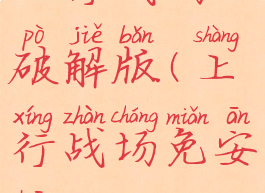 pò jiě bǎn shàng
破解版(上
xíng zhàn cháng miǎn ān
行战场免安